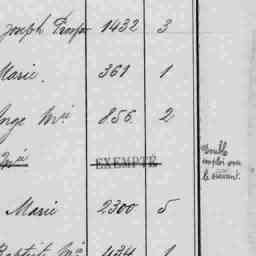 Joseph Prosper 1432 3
Marie. 361 1
Ange Mie 856 2
Mie EXEMPTÉ
Double
emploi avec
le suivant.
Marie 2300 5
Baptiste Mie 434 1